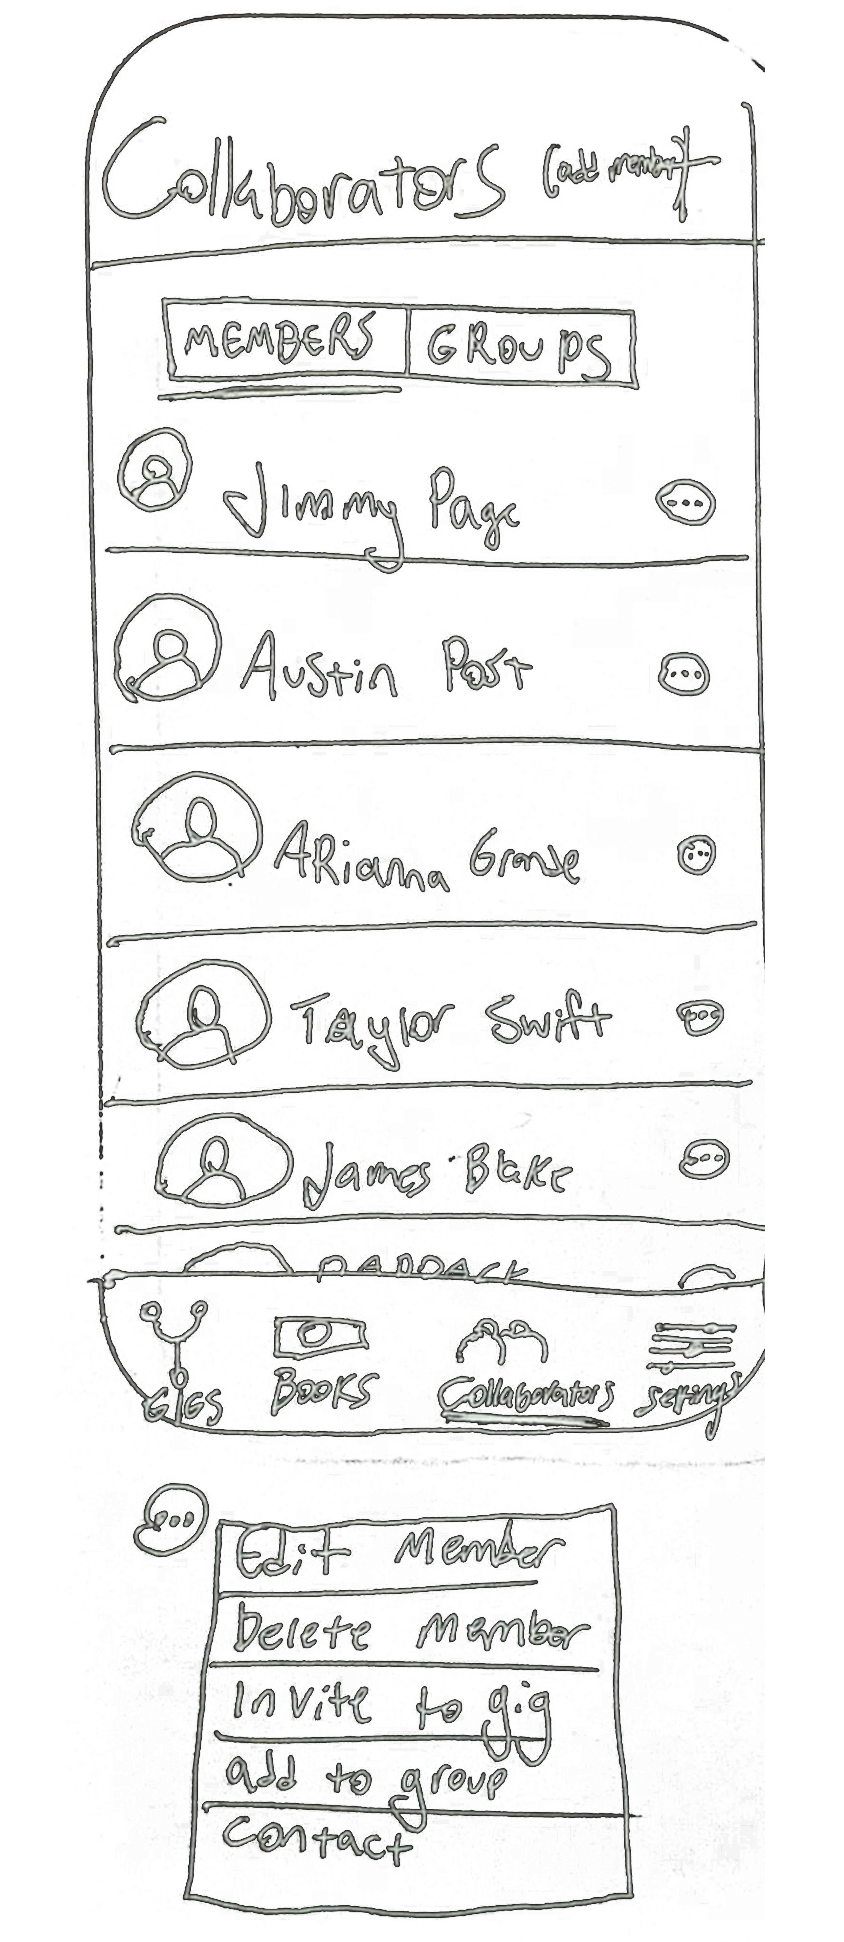 Collaborators (add member)+
MEMBERS GROUPS
Jimmy Page
Austin Post
ARianna Grande
Taylor Swift
James Blake
GIGS BOOKS Collaborators settings
Edit Member
Delete Member
Invite to gig
add to group
contact